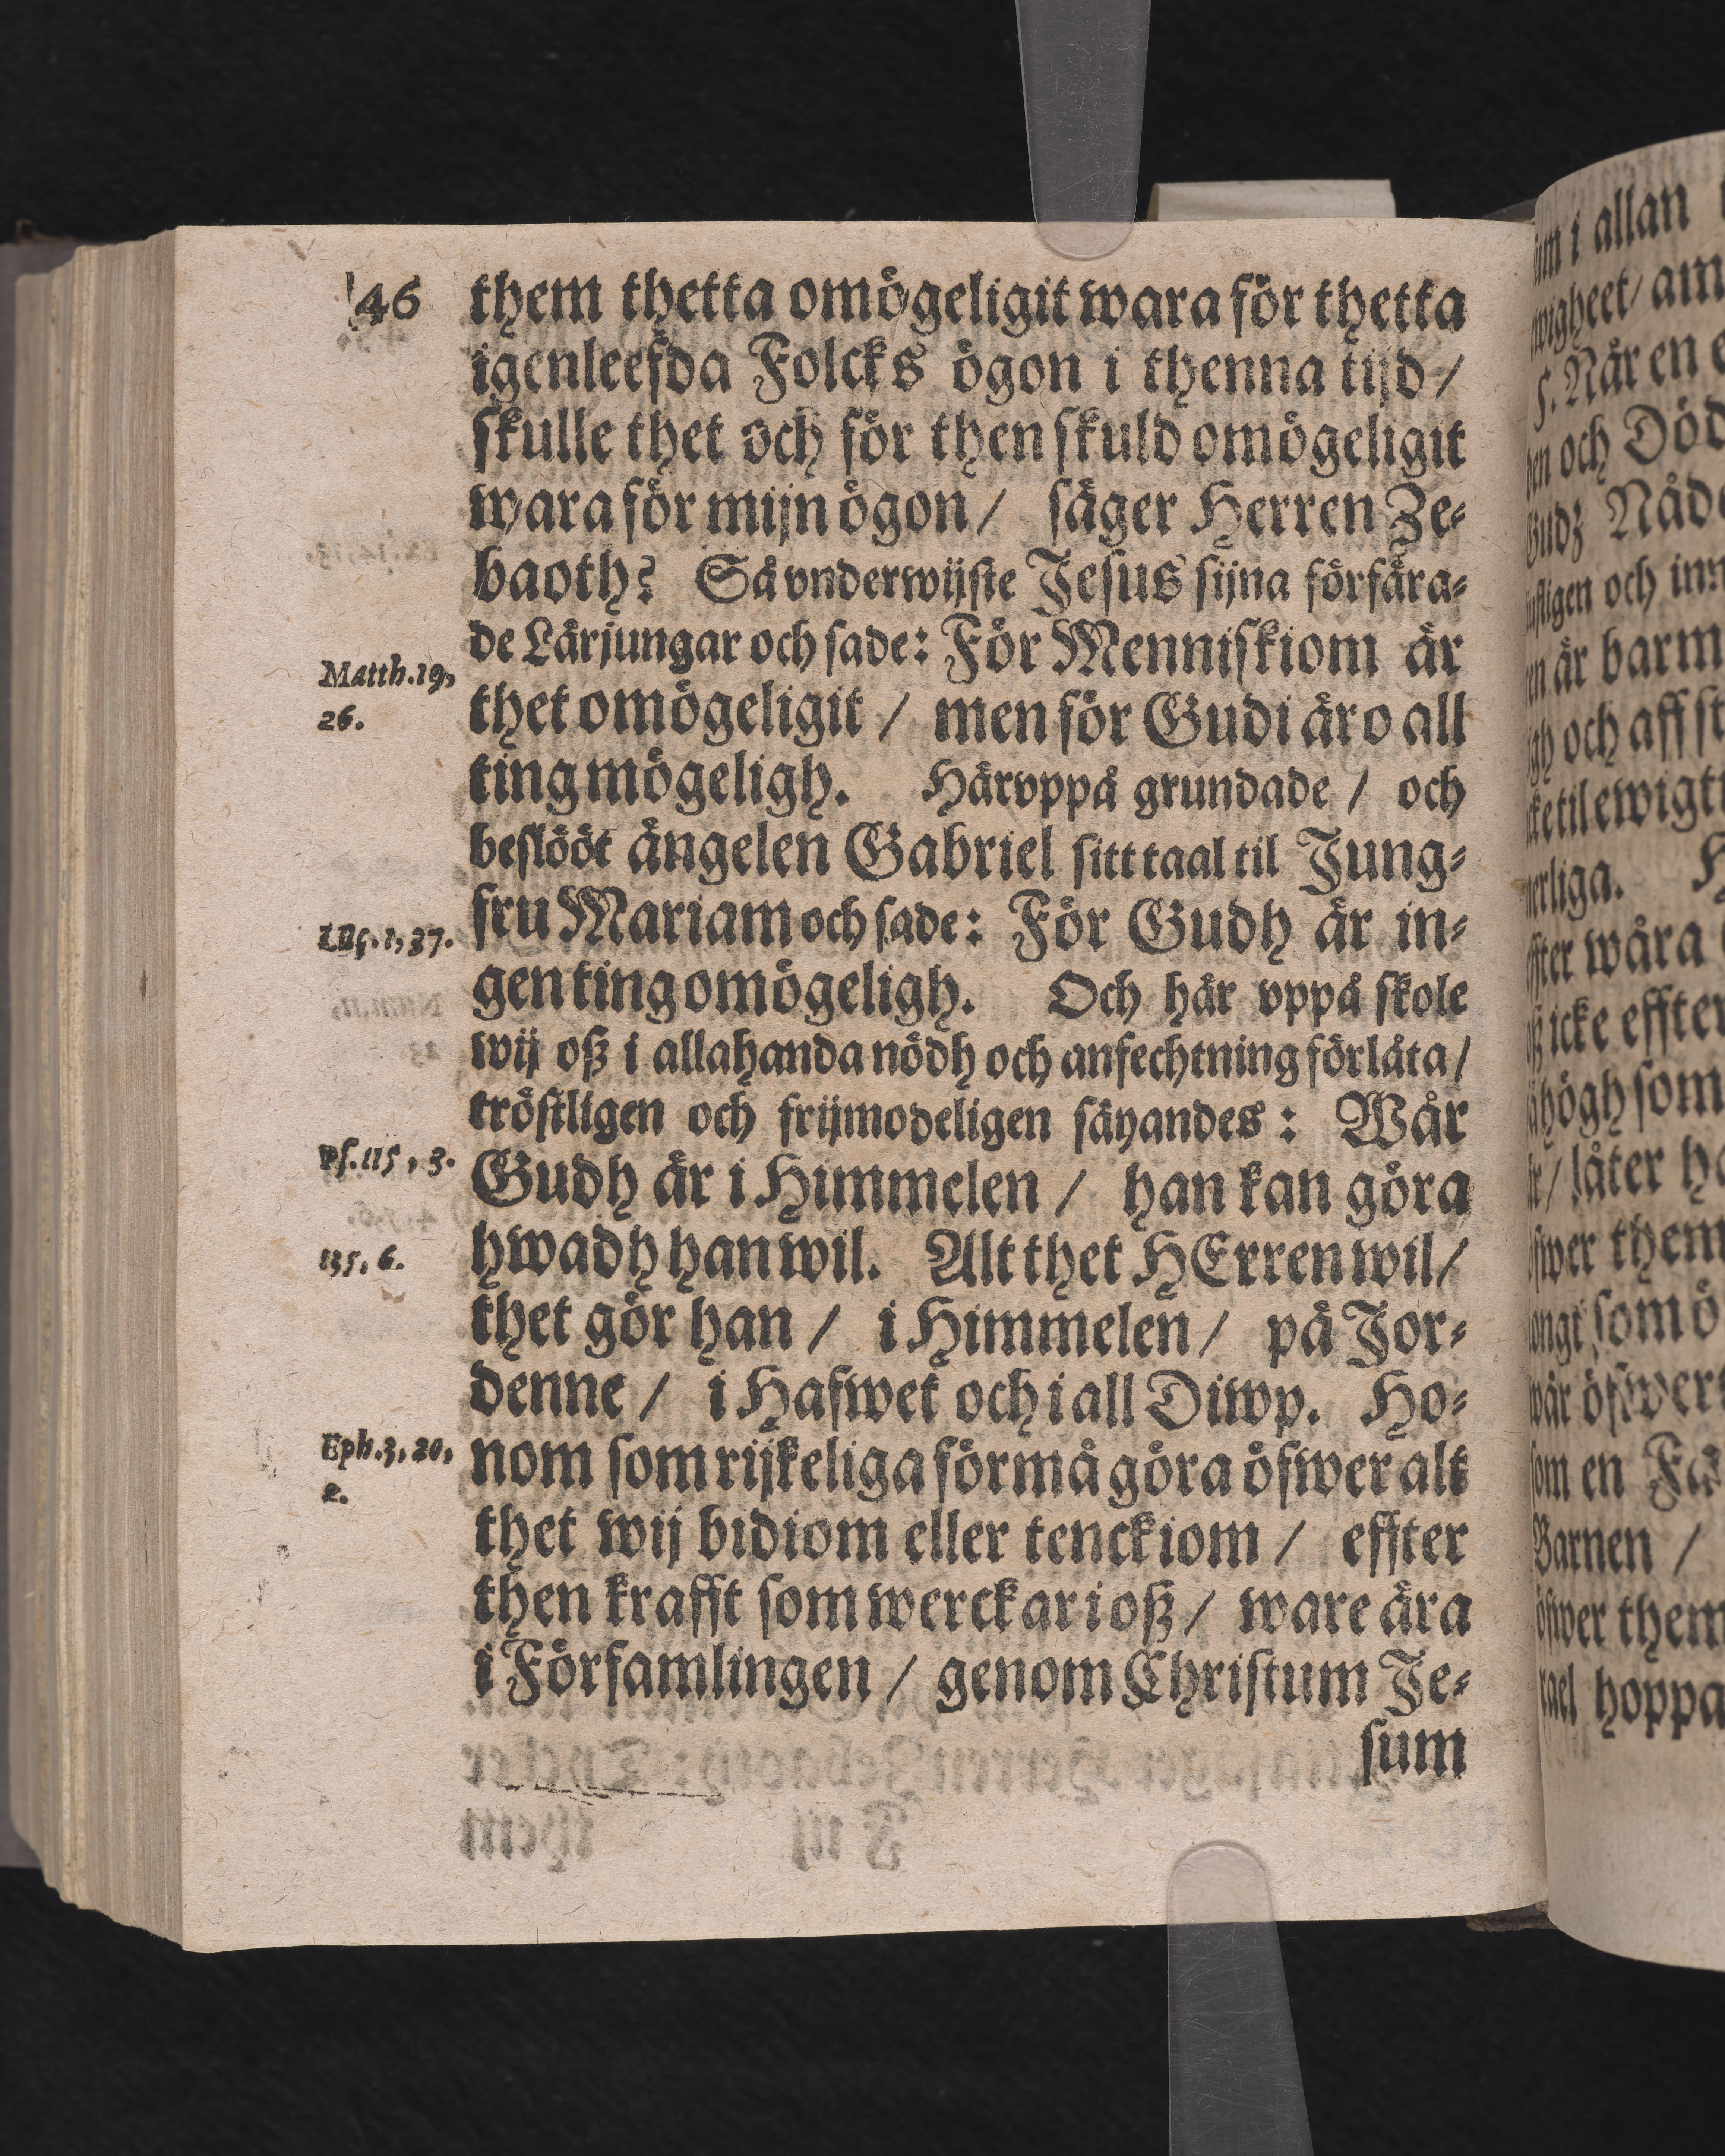 46
them thetta omögeligit wara för thetta
igenleefda Folcks ögon i thenna tijd /
skulle thet och för then skuld omögeligit
wara för mijn ögon / säger Herren Ze-
baoth? Så vnderwijste Jesus sijna förfära-
de Lärjungar och sade: För Menniskiom är
Matth. 19,
26.
thet omögeligit / men för Gudi äro all
ting mögeligh. Häruppå grundade / och
beslööt ängelen Gabriel sitt taal til Jung-
fru Mariam och sade: För Gudh är in-
Luc. 1, 37.
gen ting omögeligh. Och här vppå skole
wij oß i allahanda nödh och anfechtning förlåta /
tröstligen och frijmodeligen säyandes: Wår
Ps. 115, 3.
Gudh är i Himmelen / han kan göra
hwadh han wil. Alt thet HErren wil /
135, 6.
thet gör han / i Himmelen / på Jor-
denne / i Hafwet och i all Diwp. Ho-
Eph. 3, 20,
2.
nom som rijkeliga förmå göra öfwer alt
thet wij bidiom eller tenckiom / effter
then krafft som werckar i oß / ware ära
i Församlingen / genom Christum Je-
sum
i allan
am
När en
och Död
Nåde
och inn
är barm
och aff
til ewigt
wåra
icke effter
högh som
låter
them
som
som en
Barnen /
öfwer them
hoppa